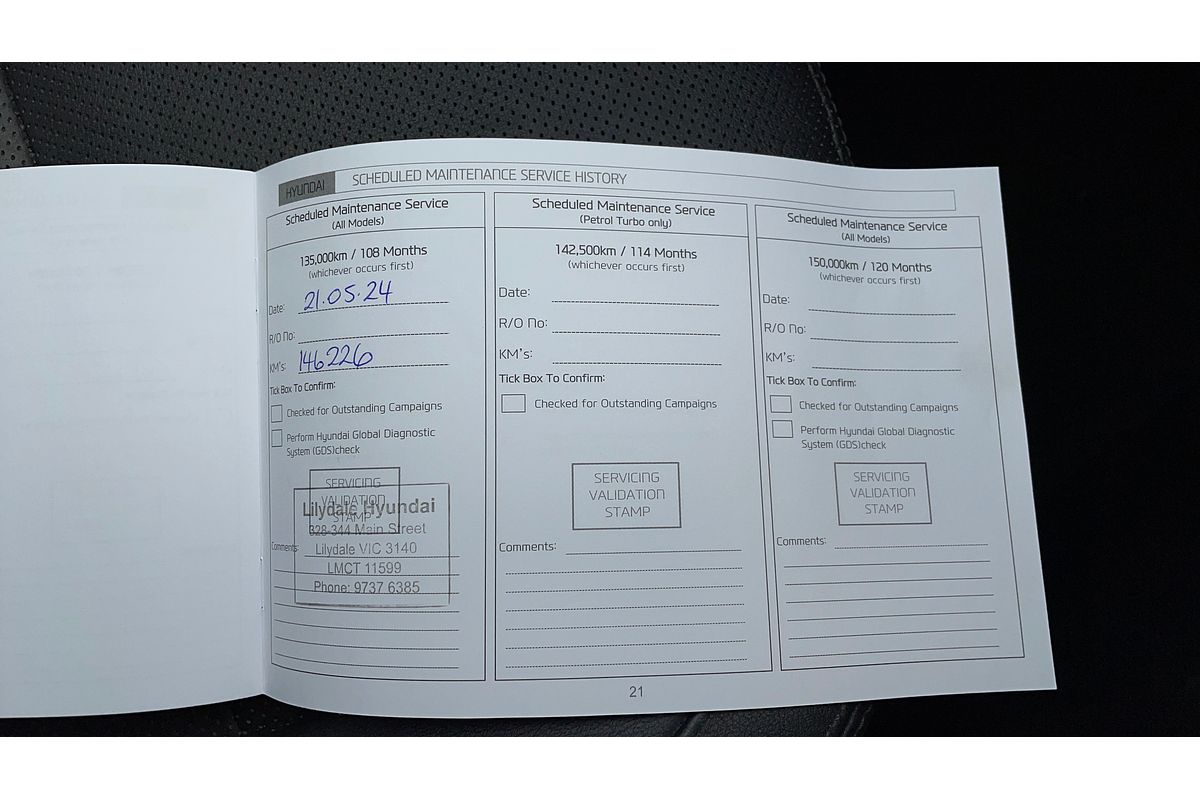 HYUNDAI
SCHEDULED MAINTENANCE SERVICE HISTORY
Scheduled Maintenance Service
(All Models)
135,000km / 108 Months
(whichever occurs first)
Date: 21.05.24
R/O No:
KM's: 146226
Tick Box To Confirm:
Checked for Outstanding Campaigns
Perform Hyundai Global Diagnostic
System (GDS)check
SERVICING
VALIDATION
STAMP
Lilydale Hyundai
328-344 Main Street
Lilydale VIC 3140
LMCT 11599
Phone: 9737 6385
Comments:
Scheduled Maintenance Service
(Petrol Turbo only)
142,500km / 114 Months
(whichever occurs first)
Date:
R/O No:
KM's:
Tick Box To Confirm:
Checked for Outstanding Campaigns
SERVICING
VALIDATION
STAMP
Comments:
Scheduled Maintenance Service
(All Models)
150,000km / 120 Months
(whichever occurs first)
Date:
R/O No:
KM's:
Tick Box To Confirm:
Checked for Outstanding Campaigns
Perform Hyundai Global Diagnostic
System (GDS)check
SERVICING
VALIDATION
STAMP
Comments:
21